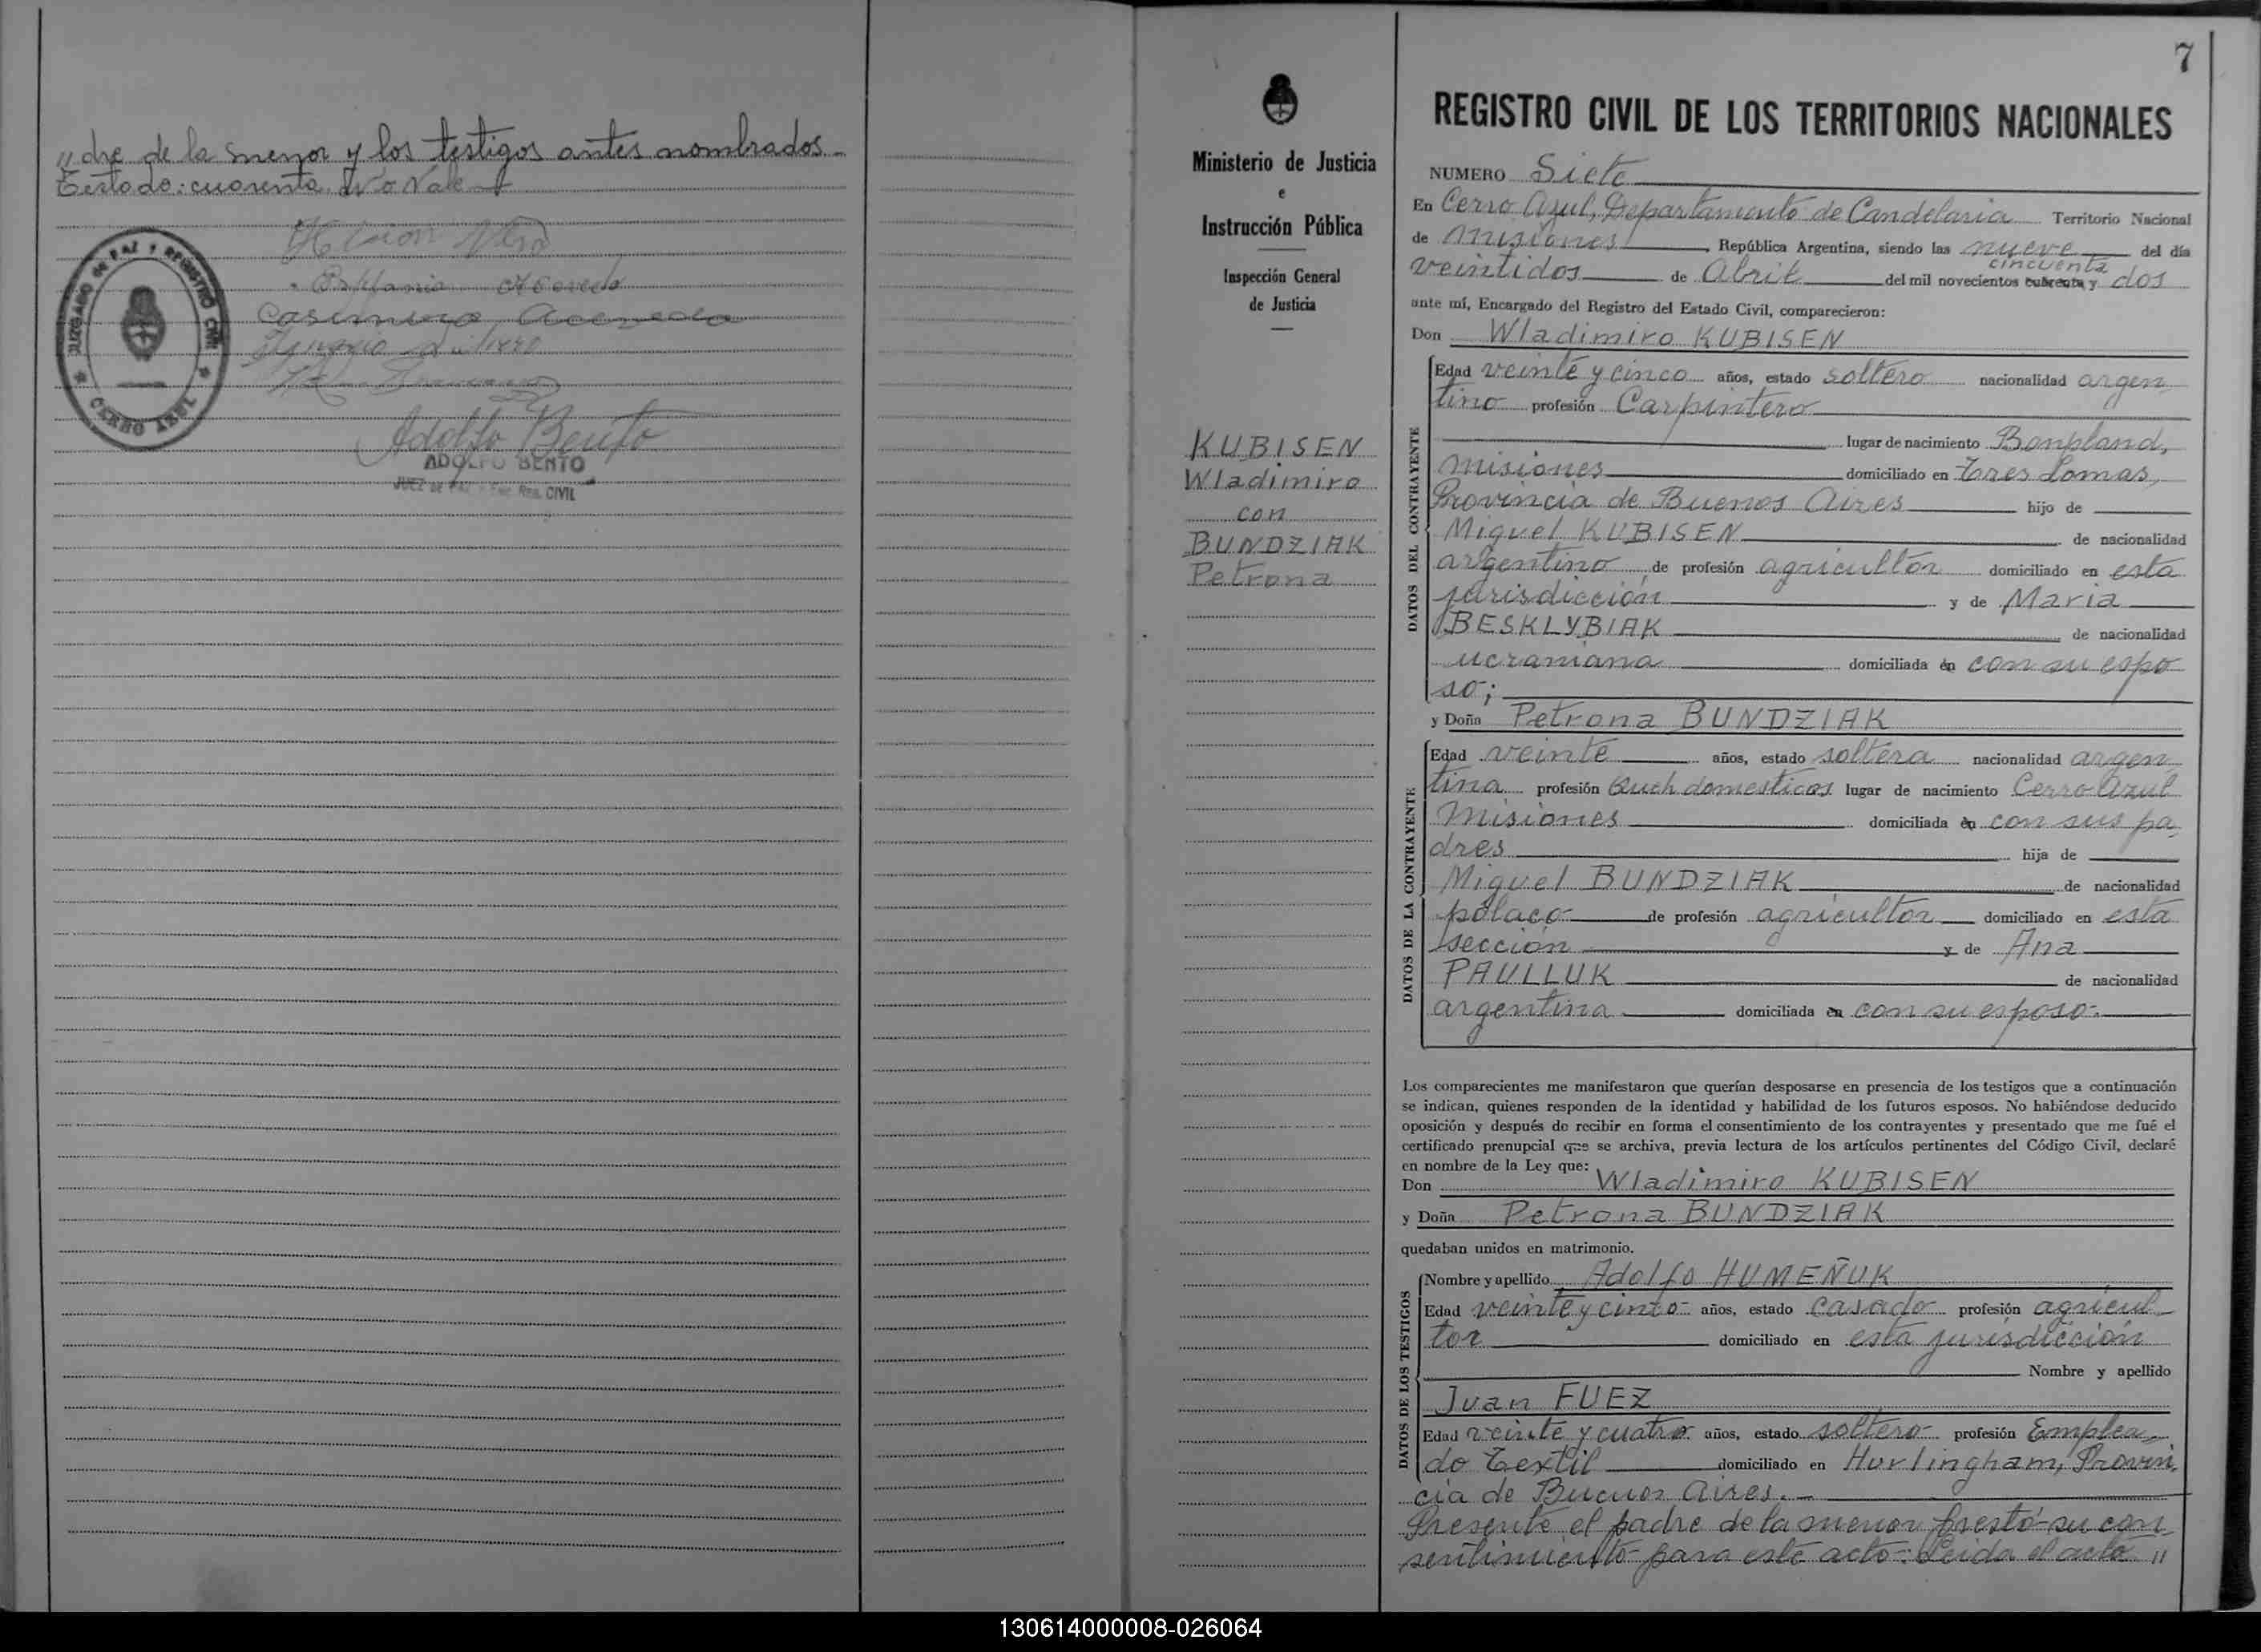 "dre de la menor y los testigos antes nombrados.-
Testado: cuarenta No Vale
JUZGADO DE PAZ Y REGISTRO CIVIL
CERRO AZUL
Casimiro
Adolfo Bento
ADOLFO BENTO
JUEZ DE PAZ REG. CIVIL
Ministerio de Justicia
e
Instrucción Pública
Inspección General
de Justicia
KUBISEN
Wladimiro
con
BUNDZIAK
Petrona
7
REGISTRO CIVIL DE LOS TERRITORIOS NACIONALES
NUMERO Siete
En Cerro Azul, Departamento de Candelaria Territorio Nacional
de Misiones, República Argentina, siendo las nueve del día
cincuenta
veintidos de Abril del mil novecientos cuarenta y dos
ante mí, Encargado del Registro del Estado Civil, comparecieron:
Don Wladimiro KUBISEN
DATOS DEL CONTRAYENTE
Edad veinte y cinco años, estado soltero nacionalidad argen
tino profesión Carpintero
lugar de nacimiento Bonpland,
Misiones domiciliado en Tres Lomas,
Provincia de Buenos Aires hijo de
Miguel KUBISEN de nacionalidad
argentino de profesión agricultor domiciliado en esta
jurisdicción y de Maria
BESKLYBIAK de nacionalidad
ucraniana domiciliada en con su espo
so;
y Doña Petrona BUNDZIAK
DATOS DE LA CONTRAYENTE
Edad veinte años, estado soltera nacionalidad argen
tina profesión Queh domesticos lugar de nacimiento Cerro Azul
Misiones domiciliada en con sus pa
dres hija de
Miguel BUNDZIAK de nacionalidad
polaco de profesión agricultor domiciliado en esta
sección y de Ana
PAULLUK de nacionalidad
argentina domiciliada en con su esposo.
Los comparecientes me manifestaron que querían desposarse en presencia de los testigos que a continuación
se indican, quienes responden de la identidad y habilidad de los futuros esposos. No habiéndose deducido
oposición y después de recibir en forma el consentimiento de los contrayentes y presentado que me fué el
certificado prenupcial que se archiva, previa lectura de los artículos pertinentes del Código Civil, declaré
en nombre de la Ley que:
Don Wladimiro KUBISEN
y Doña Petrona BUNDZIAK
quedaban unidos en matrimonio.
DATOS DE LOS TESTIGOS
Nombre y apellido Adolfo HUMEÑUK
Edad veinte y cinco años, estado casado profesión agricul
tor domiciliado en esta jurisdicción
Nombre y apellido
Juan FUEZ
Edad veinte y cuatro años, estado soltero profesión Emplea
do Textil domiciliado en Hurlingham, Provin
cia de Buenos Aires.-
Presente el padre de la menor prestó su con
sentimiento para este acto: Leida el acta "
130614000008-026064